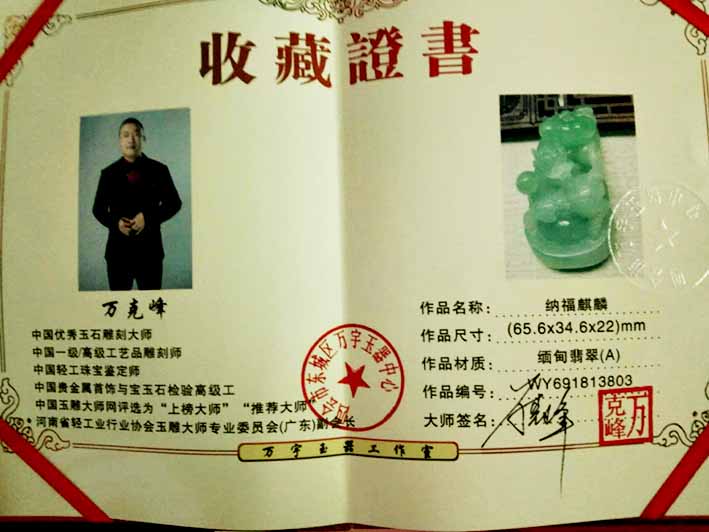 收藏證書
万克峰
中国优秀玉石雕刻大师
中国一级/高级工艺品雕刻师
中国轻工珠宝鉴定师
中国贵金属首饰与宝玉石检验高级工
中国玉雕大师网评选为“上榜大师”“推荐大师”
河南省轻工业行业协会玉雕大师专业委员会(广东)副会长
作品名称: 纳福麒麟
作品尺寸: (65.6x34.6x22)mm
作品材质: 缅甸翡翠(A)
作品编号: WY691813803
大师签名:
万克峰
会市东城区万字玉器中心
万字玉器工作室